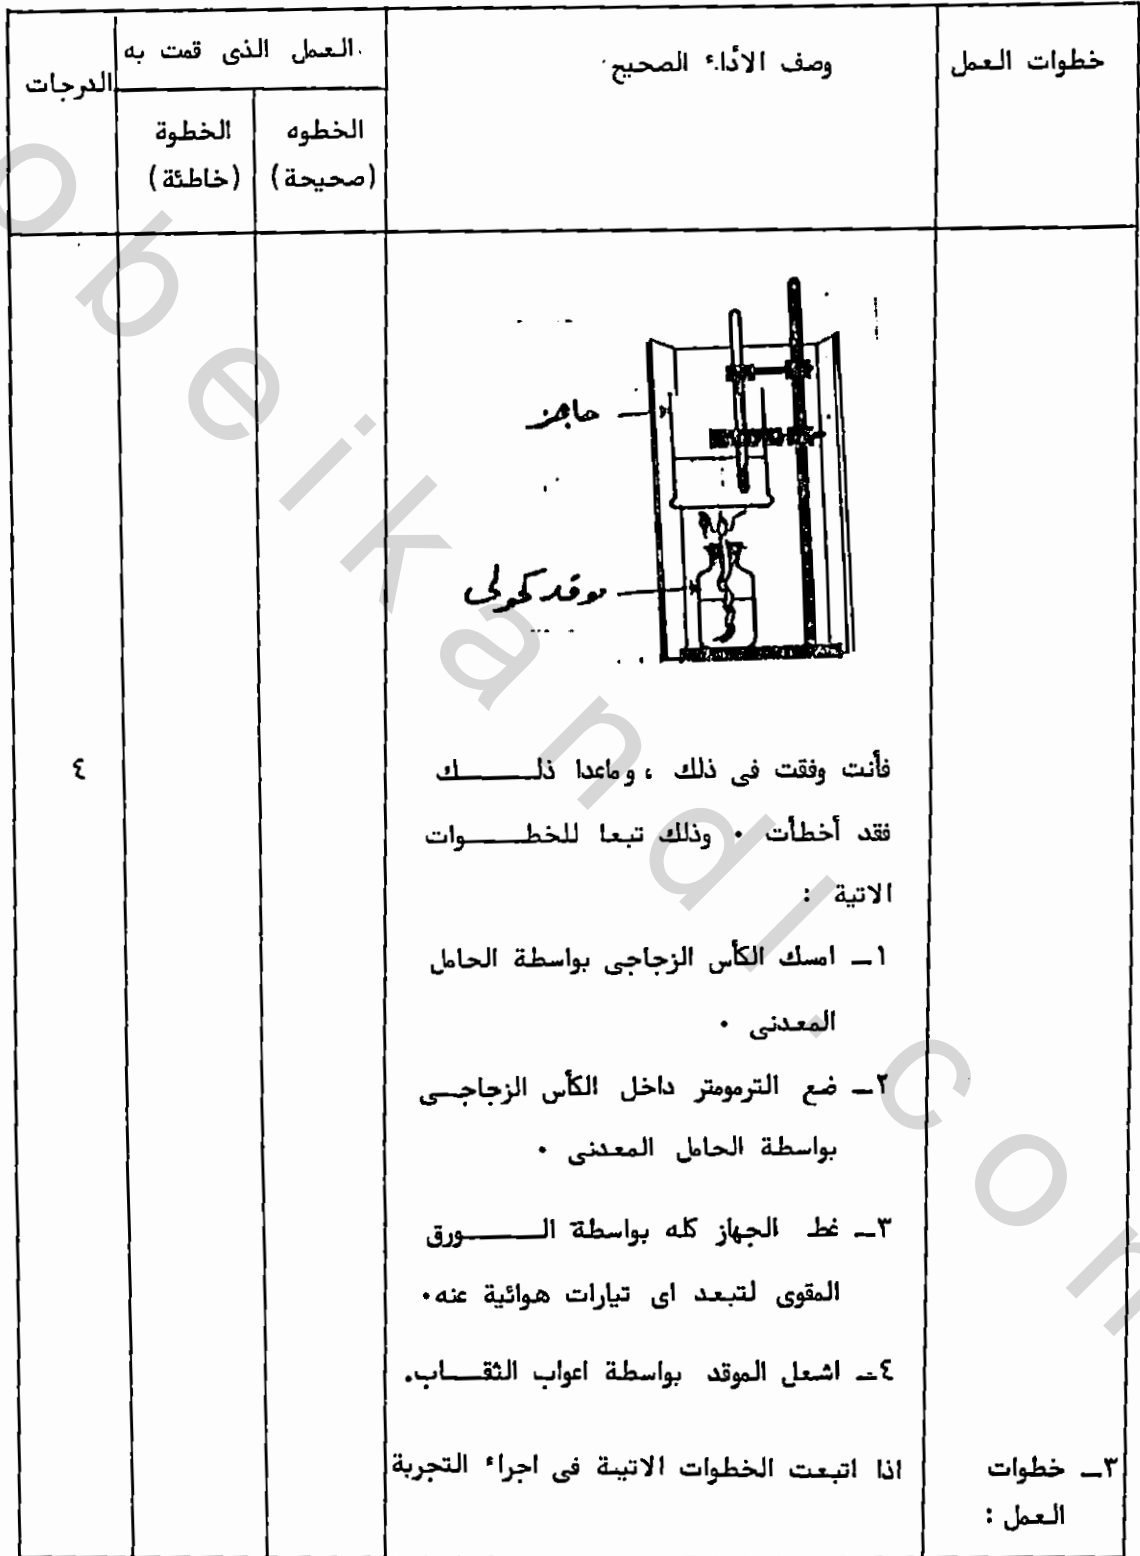 خطوات العمل
وصف الأداء الصحيح
العمل الذى قمت به
الدرجات
الخطوه
(صحيحة)
الخطوة
(خاطئة)
حاجز
موقد كحولى
فأنت وفقت فى ذلك ، وماعدا ذلــــــك
٤
فقد أخطأت . وذلك تبعا للخطـــــوات
الاتية :
١ـ امسك الكأس الزجاجى بواسطة الحامل
المعدنى .
٢ـ ضع الترمومتر داخل الكأس الزجاجـى
بواسطة الحامل المعدنى .
٣ـ غط الجهاز كله بواسطة الــــــورق
المقوى لتبعد اى تيارات هوائية عنه.
٤ـ اشعل الموقد بواسطة اعواب الثقـــاب.
٣ـ خطوات
اذا اتبعت الخطوات الاتيىة فى اجراء التجربة
العمل :
obeikandl.com